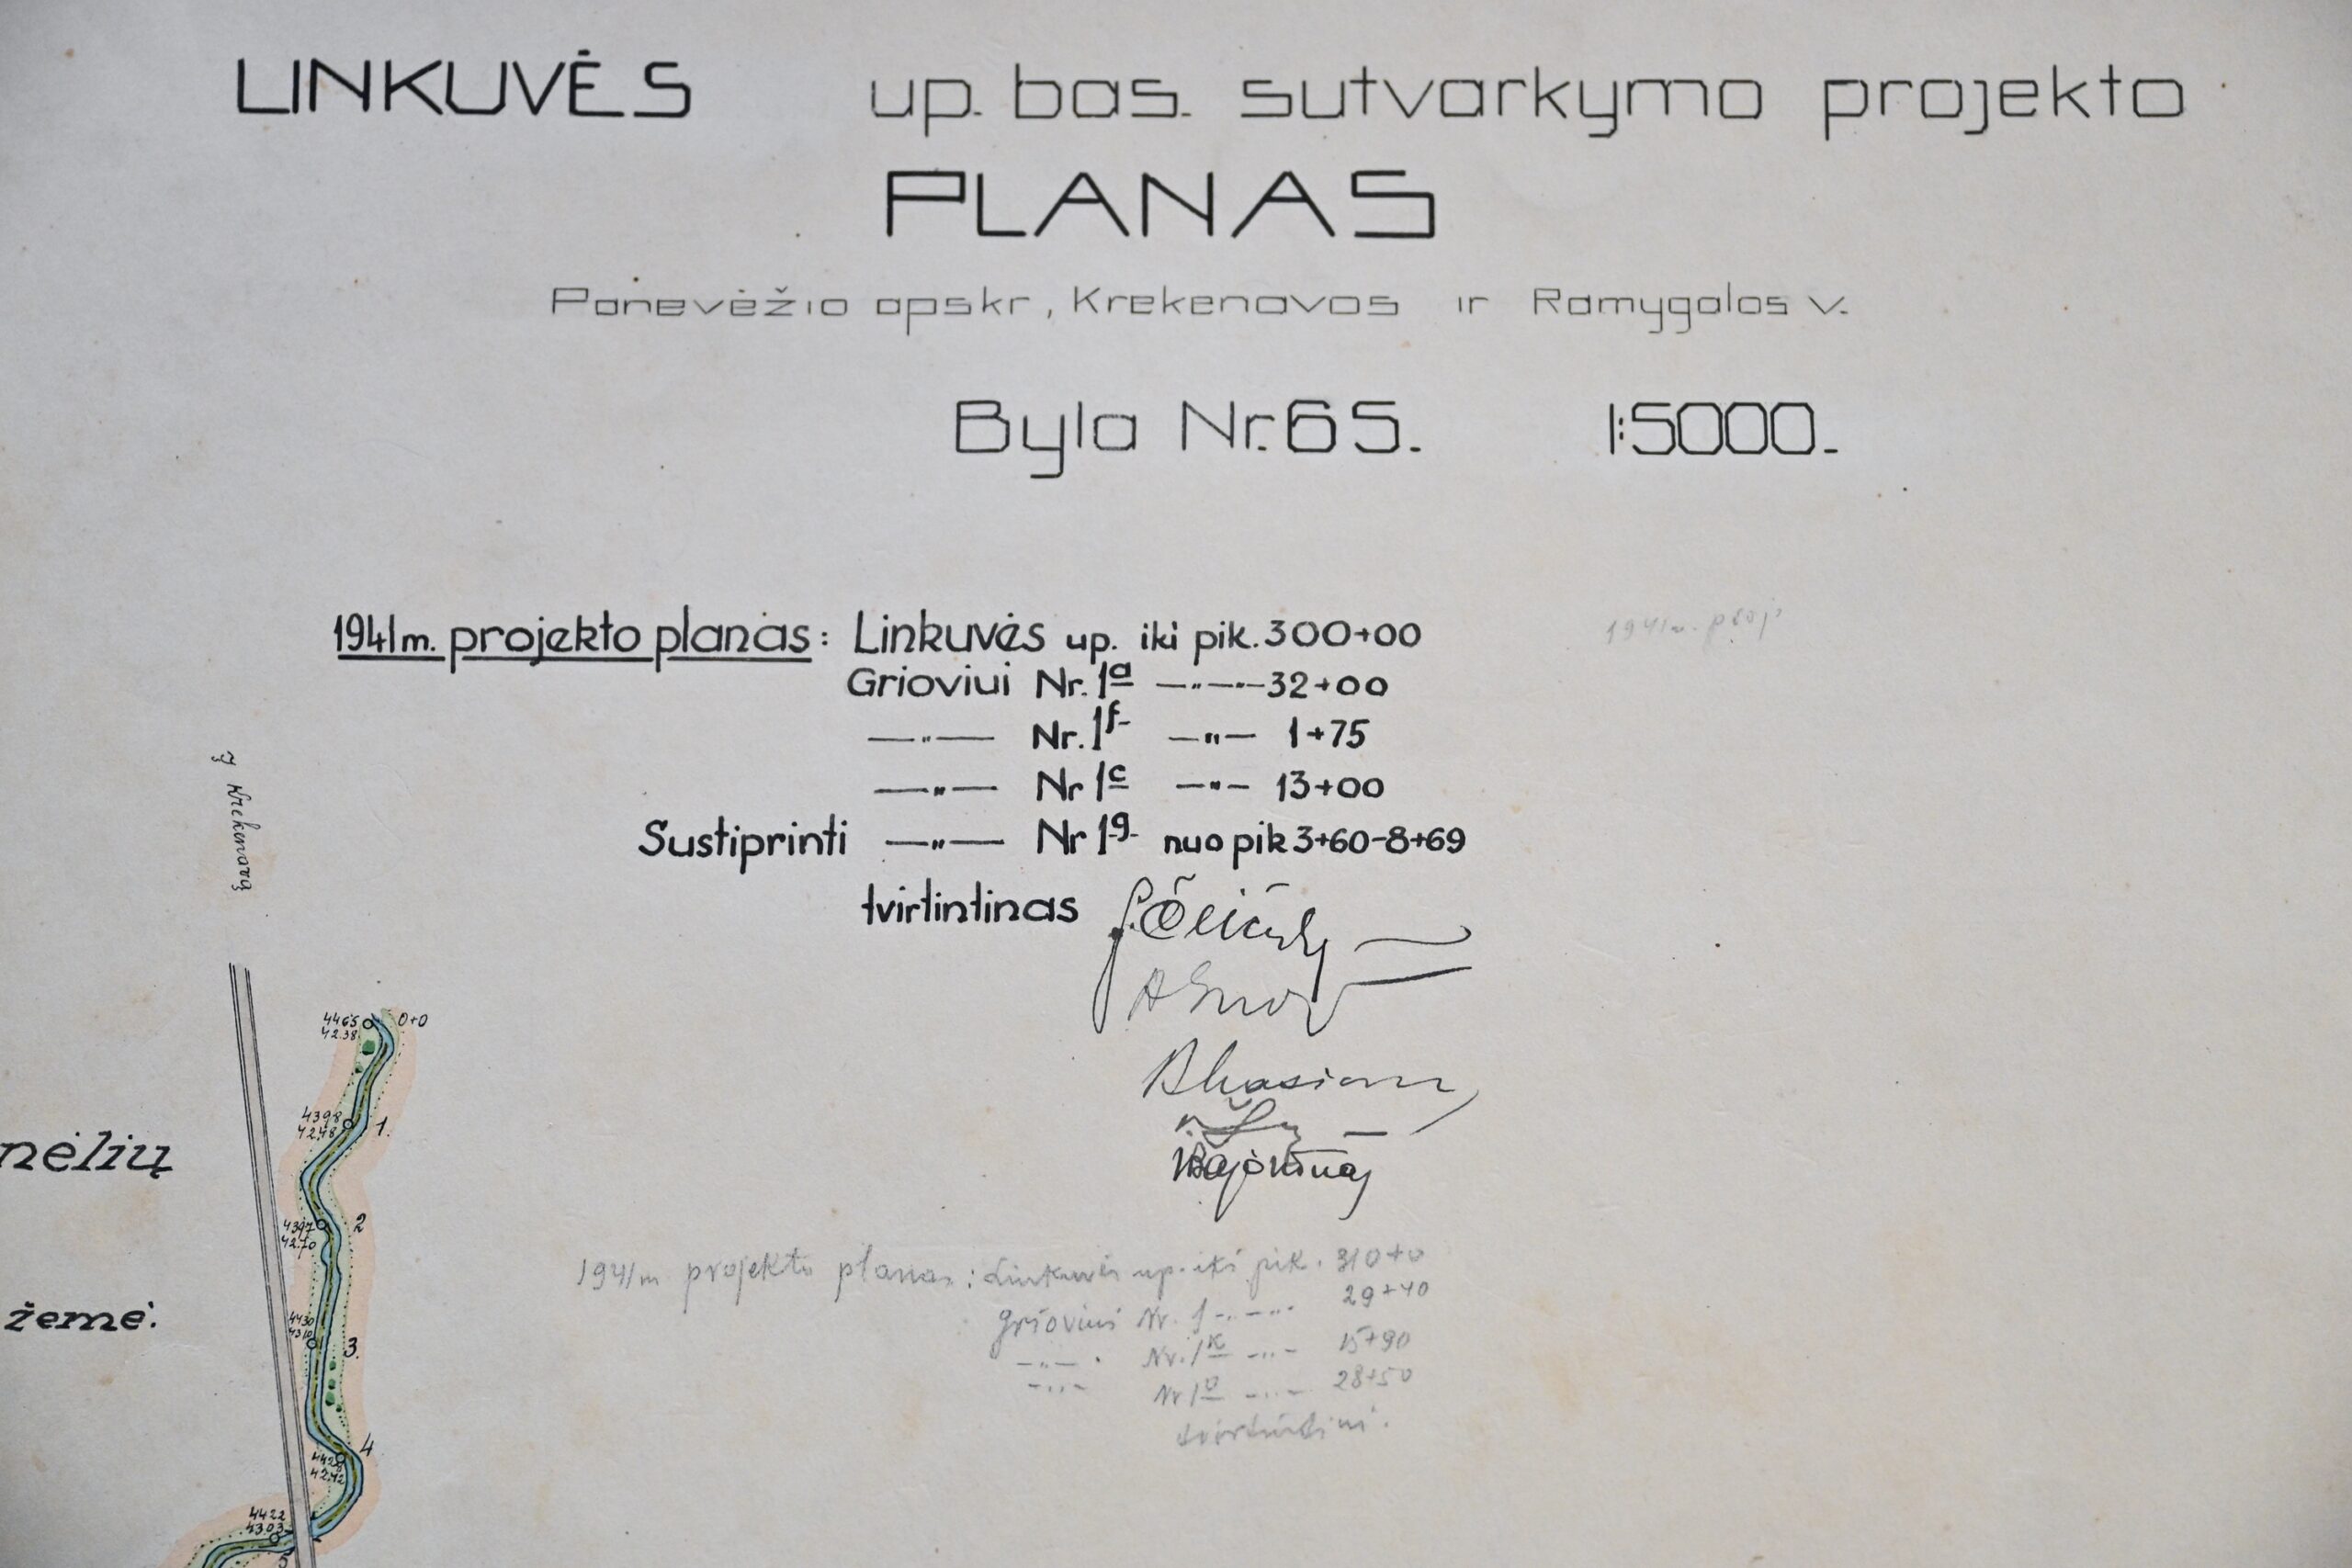 LINKUVĖS up. bas. sutvarkymo projekto
PLANAS
Panevėžio apskr, Krekenavos ir Ramygalos v.
Byla Nr. 65. 1:5000.
1941 m. projekto planas: Linkuvės up. iki pik. 300+00
1941 m. proj.
Grioviui Nr. 1a —„—„— 32+00
—„— Nr. 1f —„— 1+75
—„— Nr 1c —„— 13+00
Sustiprinti —„— Nr 1g nuo pik 3+60-8+69
tvirtintinas
Į Krekenavą
4465
42.38
0+0
4398
42.48
1.
nėlių
4397
42.70
2
1941 m projekto planas: Linkuvės up. iki pik. 310+0
Grioviui Nr. 1 -„- -„- 29+40
-„- Nr. 1k -„- 15+90
-„- Nr 1o -„- 28+50
tvirtintini.
žemė.
4430
4310
3.
4
4429
42.42
4422
4303
5